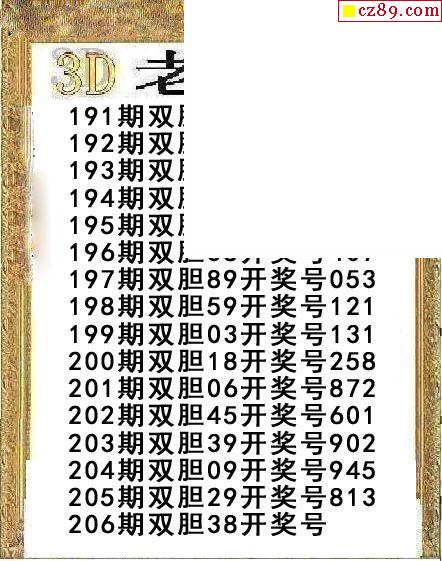 cz89.com
3D 老
191期双胆
192期双胆
193期双胆
194期双胆
195期双胆
196期双胆
197期双胆89开奖号053
198期双胆59开奖号121
199期双胆03开奖号131
200期双胆18开奖号258
201期双胆06开奖号872
202期双胆45开奖号601
203期双胆39开奖号902
204期双胆09开奖号945
205期双胆29开奖号813
206期双胆38开奖号